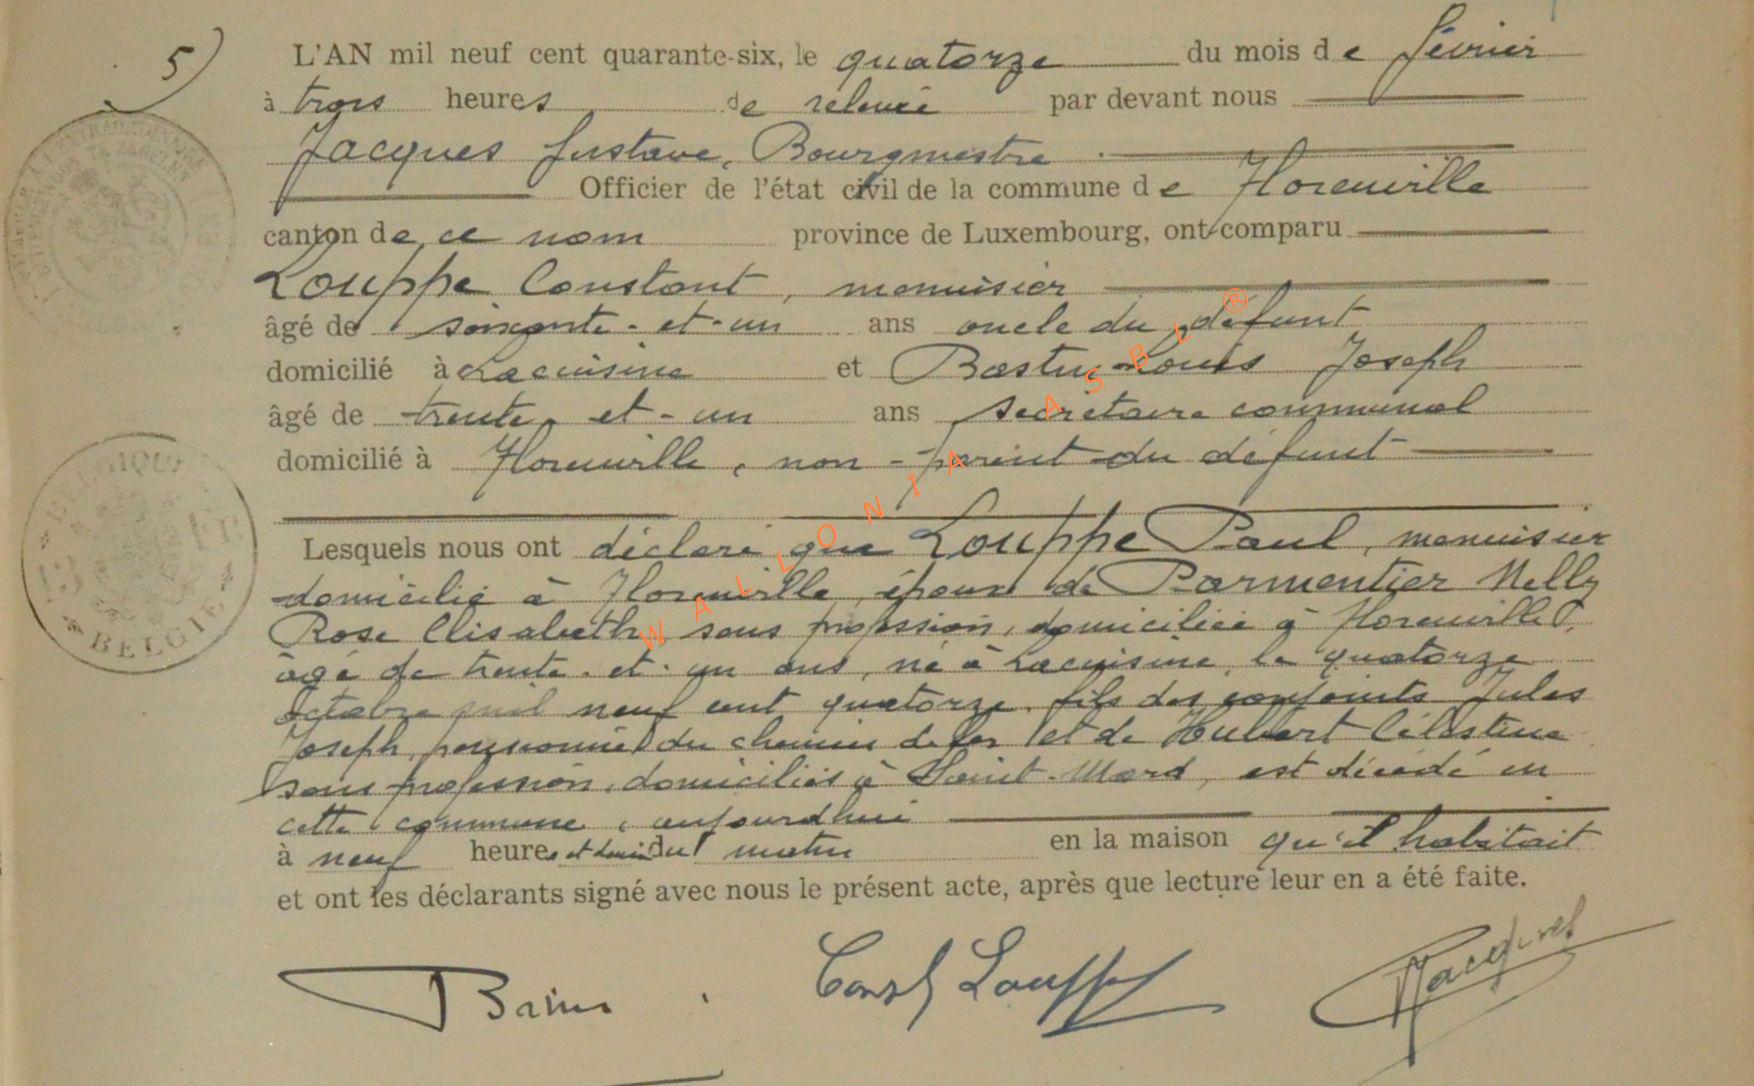 5)
L'AN mil neuf cent quarante-six, le quatorze du mois de février
à trois heures de relevée par devant nous
Jacques Gustave, Bourgmestre
Officier de l'état civil de la commune de Florenville
canton de ce nom province de Luxembourg, ont comparu
Louppe Constant, menuisier
âgé de soixante-et-un ans oncle du défunt
domicilié à Lacuisine et Louis Joseph
âgé de trente-et-un ans secrétaire communal
domicilié à Florenville, non-parent du défunt
Lesquels nous ont déclaré que Louppe Paul, menuisier
domicilié à Florenville, époux de Parmentier Nelly
Rose Elisabeth, sans profession, domiciliée à Florenville,
âgé de trente-et-un ans, né à Lacuisine, le quatorze
octobre mil neuf cent quatorze, fils des conjoints Jules
Joseph, pensionné du chemin de fer et de Hubert Célestine
sans profession, domiciliés à Saint-Mard, est décédé en
cette commune, aujourd'hui
à neuf heures et demie du matin en la maison qu'il habitait
et ont les déclarants signé avec nous le présent acte, après que lecture leur en a été faite.
Const Louppe
GJacques
BELGIQUE
BELGIE
WALLONIA ASBL®